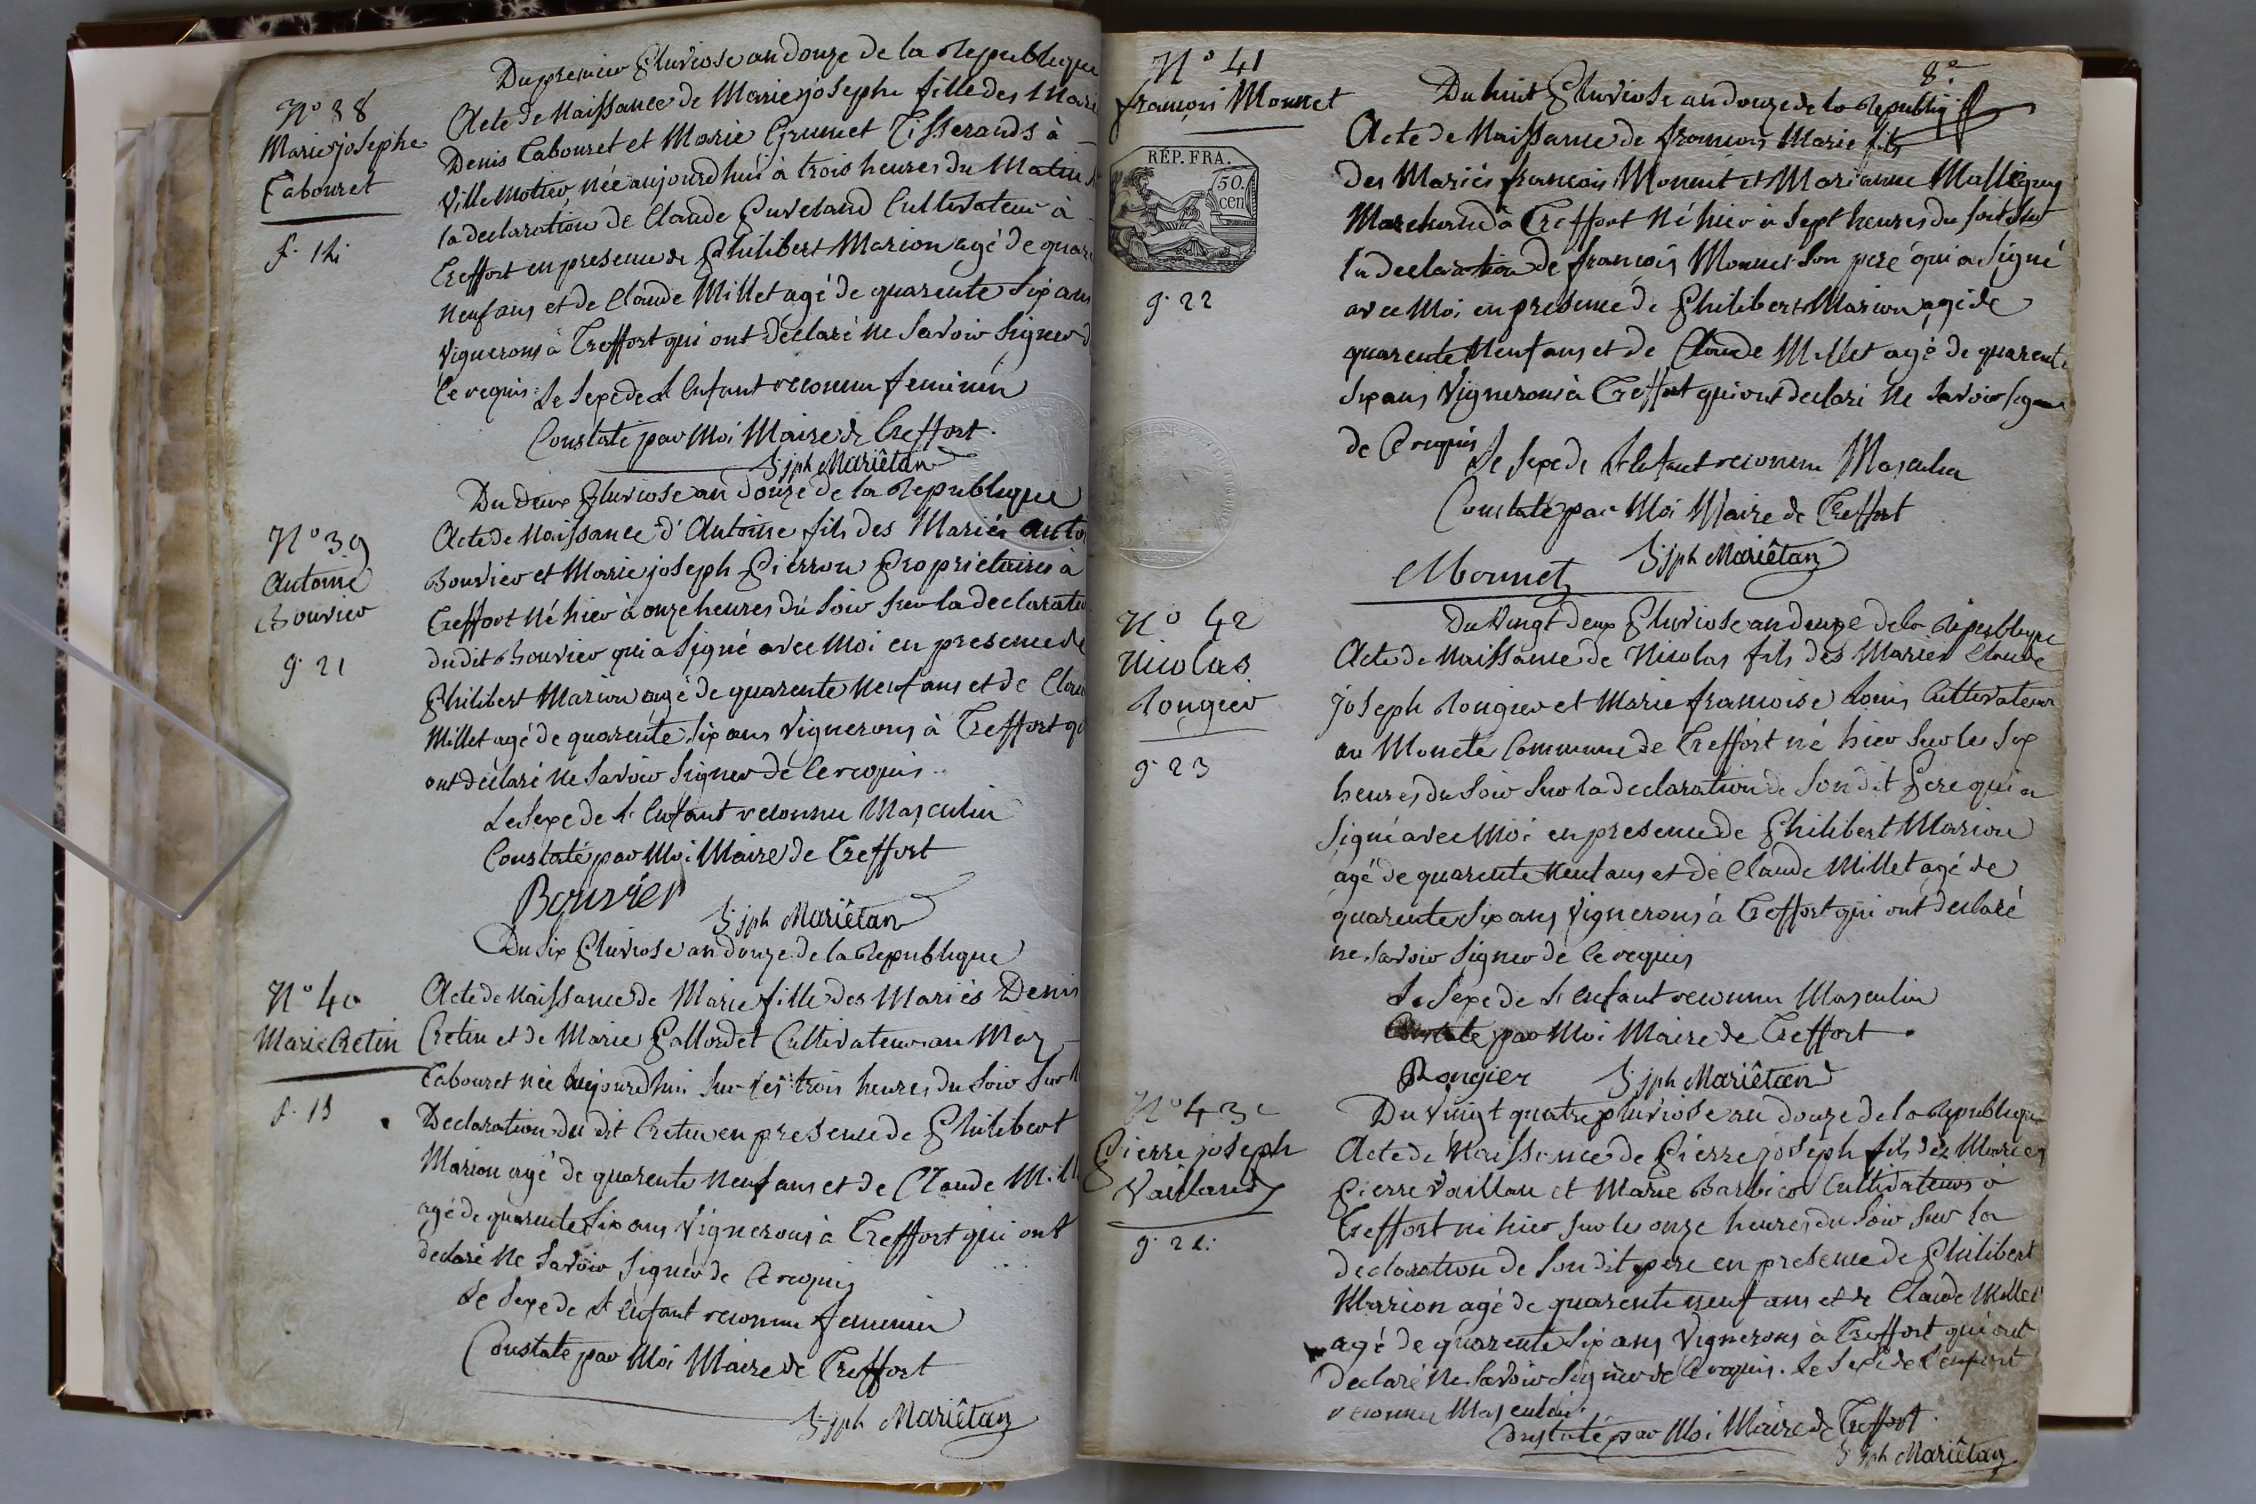 Du premier Pluviose an douze de la Republique
N° 38
Marie josephe
Cabouret
f. 14
Acte de Naissance de Marie joseph fille des Mari
Denis Cabouret et Marie Grumet Tisserands à
Ville Motier, Née aujourdhui à trois heures du Matin
la declaration de Claude Puveland Cultivateur à
Treffort en presence de Philibert Marion agé de quar
neuf ans et de Claude Millet agé de quarente six ans
Vignerons à Treffort qui ont declaré ne savoir signer d
ce requis. Le sexe de l'enfant reconnu feminin
Constaté par Moi Maire de Treffort.
jph Mariêtan
Du deux Pluviose an douze de la Republique
N° 39
Antoine
Bouvier
g. 21
Acte de Naissance d'Antoine fils des Mariés anto
Bouvier et Marie joseph Pierron Proprietaires à
Treffort Né hier à onze heures du soir sur la declaration
du dit Bouvier qui a signé avec Moi en presence de
Philibert Marion agé de quarente neuf ans et de Clau
Millet agé de quarente six ans Vignerons à Treffort qu
ont declaré ne savoir signer de ce requis.
Le sexe de l'enfant reconnu Masculin
Constaté par Moi Maire de Treffort
Bouvier
jph Mariêtan
Du six Pluviose an douze de la Republique
N° 40
Marie Cretin
f. 15
Acte de Naissance de Marie fille des Mariés Denis
Cretin et de Marie Gallordet Cultivateurs au Mas
Cabouret née aujourdhui sur les trois heures du soir sur l
Declaration du dit Cretin en presence de Philibert
Marion agé de quarente neuf ans et de Claude Mill
agé de quarente six ans Vignerons à Treffort qui ont
declaré ne savoir signer de ce requis
Le sexe de l'enfant reconnu feminin
Constaté par Moi Maire de Treffort
jph Mariêtan
8e
N° 41
françois Monnet
RÉP. FRA.
50.
cen
g. 22
Du huit Pluviose an douze de la Republiq
Acte de Naissance de francois Marie fils
des Mariés francois Monnet et Marianne
Marchand à Treffort Né hier à sept heures du soir sur
la declaration de francois Monnet son pere qui a signé
avec Moi en presence de Philibert Marion agé de
quarente neuf ans et de Claude Millet agé de quarente
six ans Vignerons à Treffort qui ont declaré ne savoir signer
de ce requis
Le sexe de l'enfant reconnu Masculin
Constaté par Moi Maire de Treffort
Monnet
jph Mariêtan
N° 42
Nicolas
Rongier
g. 23
Du Vingt deux Pluviose an douze de la Republique
Acte de Naissance de Nicolas fils des Mariés Claude
joseph Rongier et Marie francoise Louis Cultivateurs
au Monete Commune de Treffort né hier sur les six
heures du soir sur la declaration de son dit Pere qui a
signé avec Moi en presence de Philibert Marion
agé de quarente neuf ans et de Claude Millet agé de
quarente six ans Vignerons à Treffort qui ont declaré
ne savoir signer de ce requis
Le sexe de l'enfant reconnu Masculin
Constaté par Moi Maire de Treffort
Rongier
jph Mariêtan
N° 43
Pierre joseph
Vailland
g. 24
Du Vingt quatre pluviose an douze de la Republique
Acte de Naissance de Pierre joseph fils des Mariés
Pierre Vaillan et Marie Barbier Cultivateurs à
Treffort né hier sur les onze heures du soir sur la
declaration de son dit pere en presence de Philibert
Marion agé de quarente neuf ans et de Claude Millet
agé de quarente six ans Vignerons à Treffort qui ont
declaré ne savoir signer de ce requis. Le sexe de l'enfant
reconnu Masculin.
Constaté par Moi Maire de Treffort.
jph Mariêtan